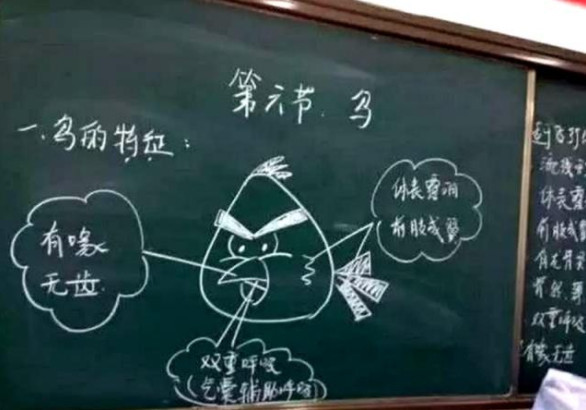 第六节 鸟
一.鸟的特征：
体表覆羽
前肢成翼
有喙
无齿
双重呼吸
(气囊辅助呼吸)
体表覆
前肢成翼
双重呼吸
有喙无齿